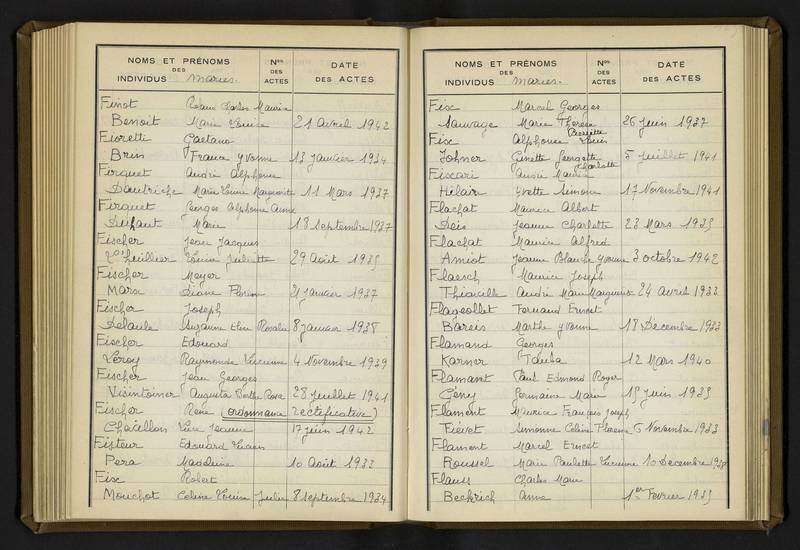 NOMS ET PRÉNOMS
DES
INDIVIDUS Mariés.
Nos
DES
ACTES
DATE
DES ACTES
Finot
Benoit Marie Louise 21 Avril 1942
Fioretti Gaetano
Brun France Yvonne 13 Janvier 1934
Firquet André Alphonse
Dautriche Marie Louise Marguerite 11 Mars 1937
Firquet Georges Alphonse
Dufaut Marie 18 Septembre 1937
Fischer Jean Jacques
L'Huillier Louise Juliette 29 Août 1935
Fischer Meyer
Marx Diane 21 Janvier 1937
Fischer Joseph
Delaule Suzanne Elise Rosalie 8 Janvier 1938
Fischer Edouard
Leroy Raymonde Lucienne 4 Novembre 1939
Fischer Jean Georges
Visintainer Augusta Berthe Rosa 28 Juillet 1941
Fischer René (ordonnance rectificative)
Chatillon Jeanne 17 Juin 1942
Fisteur Edouard Lucien
Pera Madeleine 10 Août 1933
Fix Robert
Mouchot Celine Louise Julie 8 Septembre 1934
NOMS ET PRÉNOMS
DES
INDIVIDUS Mariés.
Nos
DES
ACTES
DATE
DES ACTES
Fix Marcel Georges
Sauvage Marie Thérèse 26 Juin 1937
Fix Alphonse Louis
Johner Ginette Georgette Charlotte 5 Juillet 1941
Fixari André
Hilair Yvette Simone 17 Novembre 1941
Flachat Maurice Albert
Jeanne Charlotte 23 Mars 1935
Flachat Maurice Alfred
Amiot Jeanne Blanche Yvonne 3 Octobre 1942
Flaesch Maurice Joseph
Thiaville Marie Marguerite 24 Avril 1933
Flageollet Fernand Ernest
Bareis Marthe Yvonne 18 Décembre 1933
Flamand Georges
Karner Tauba 12 Mars 1940
Flamant Paul Edmond Roger
Géry Germaine Marie 15 Juin 1935
Flament Maurice François Joseph
Fiévet Simonne Celina Florence 6 Novembre 1933
Flament Marcel Ernest
Roussel Marie Paulette Lucienne 10 Décembre 1938
Flauss Charles Marie
Beckrich Anne 1er Février 1935